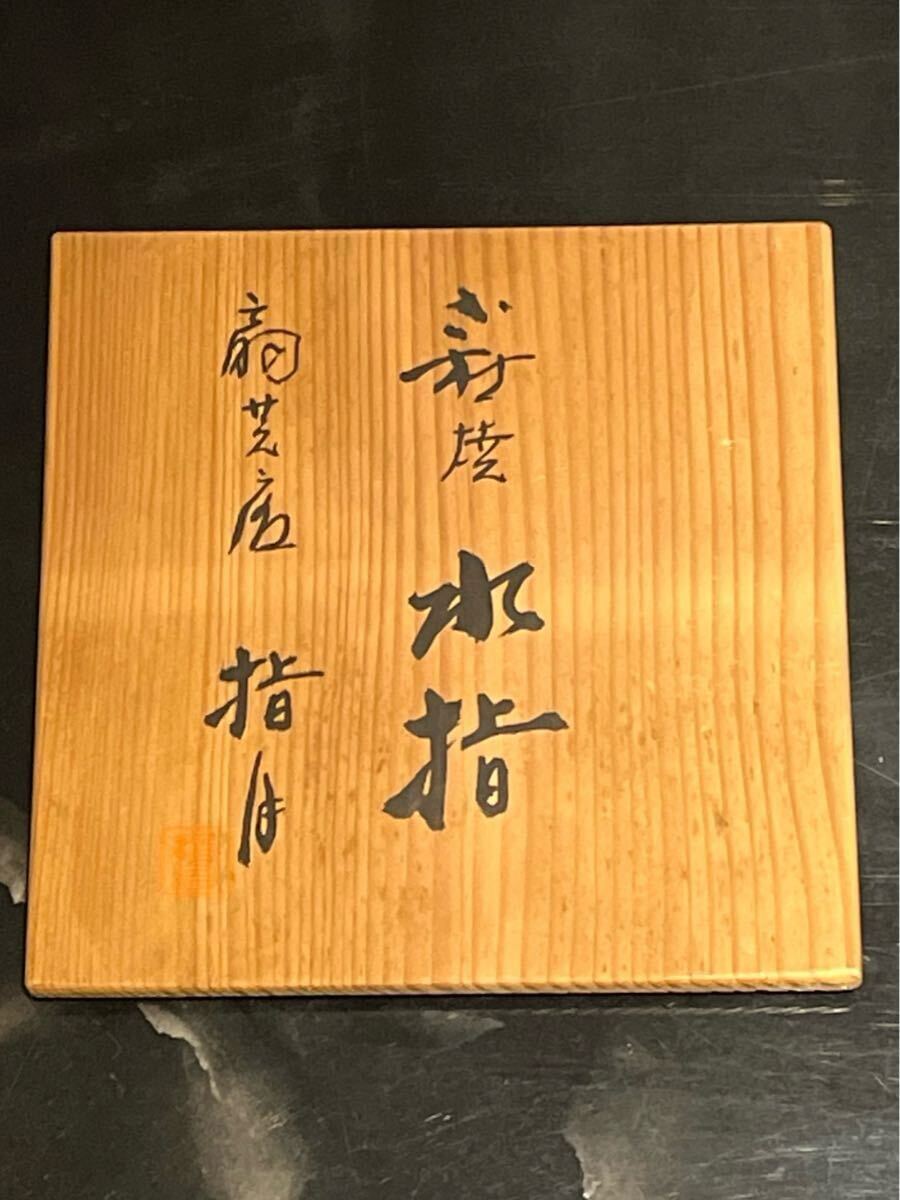 萩焼 水指
扇芒庵 指月